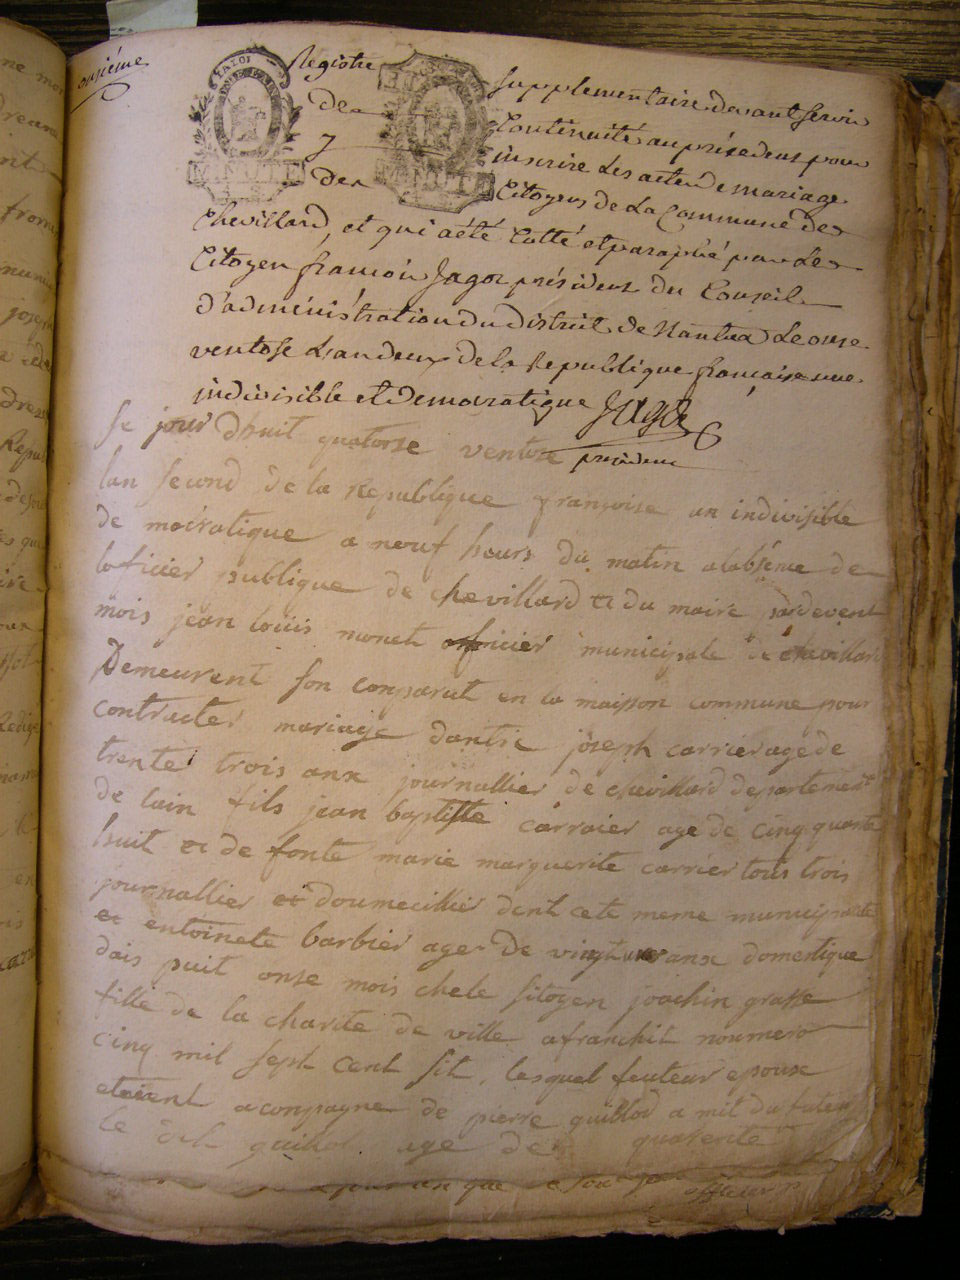 onziéme
Registre supplementaire devant servir
De Continuité au précedent pour
7 inscrire Les actes De mariage
Des Citoyens de La Commune de
Chevillard, et qui a été Cotté et paraphé par Le
Citoyen françois Jagot président du Conseil
D'administration du District de Nantua Le onze
ventose L'an deux de la Republique française une
indivisible et Democratique Jagot
président
Se jour Dhuit quatorse ventose
lan second de la Republique françoise un indivisible
de mocratique a neuf heurs du matin alabsence de
loficier publique de chevillard et du maire pardevent
mois jean loüis monet officier municipale de chevillard
Demeurent son conparut en la maison commune pour
contracter mariage dantre joseph carrier age de
trente trois anx journallier de chevillard departement
de lain fils jean baptiste carraier age de cinqquante
huit et de fonte marie marguerite carrier tous trois
journallier et doumecillier dent cete meme municipalité
et entoinete barbier ager de vingt anx domentique
dois puit onse mois chele sitoyen joachin grasse
fille de la charite de ville afranchit noumero
cinq mil sept cent sit, lesquel feuteur epoux
etoient aconpagne de pierre guillod a mit du futeur
le dit guillod age de quarente
MINUTE
MINUTE
LA LOI